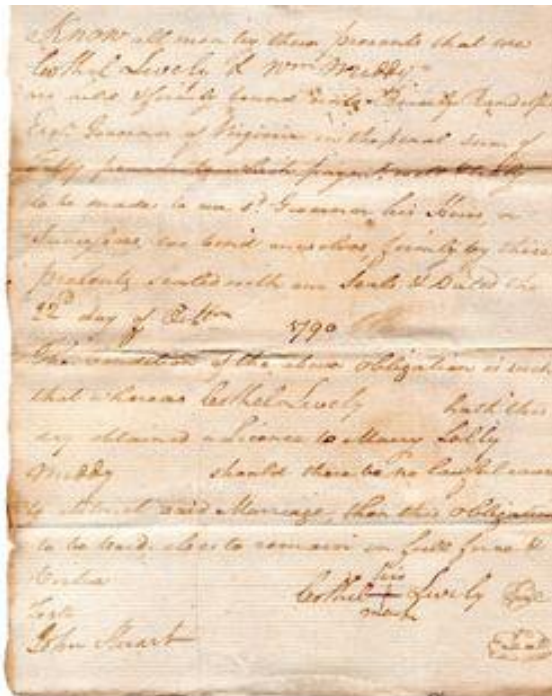 Know all men by these presents that we
Cothel Lively & Wm Middy
are held & firmly bound unto Beverly Randolph
Esqr. Governor of Virginia in the penal sum of
Fifty pounds to which payment well & truly
to be made to our sd. Governor his Heirs, or
Successors, we bind ourselves, firmly by these
presents sealed with our Seals & Dated the
22d day of 1790
The condition of the above obligation is such
that whereas Cothel Lively hath this
day obtained a Licence to Marry Sally
Middy should there be no lawful cause
to obstruct said Marriage, then this obligation
to be void else to remain in full force &
Virtue
Cothel his + mark Lively Seal
Teste
John Stuart Seal